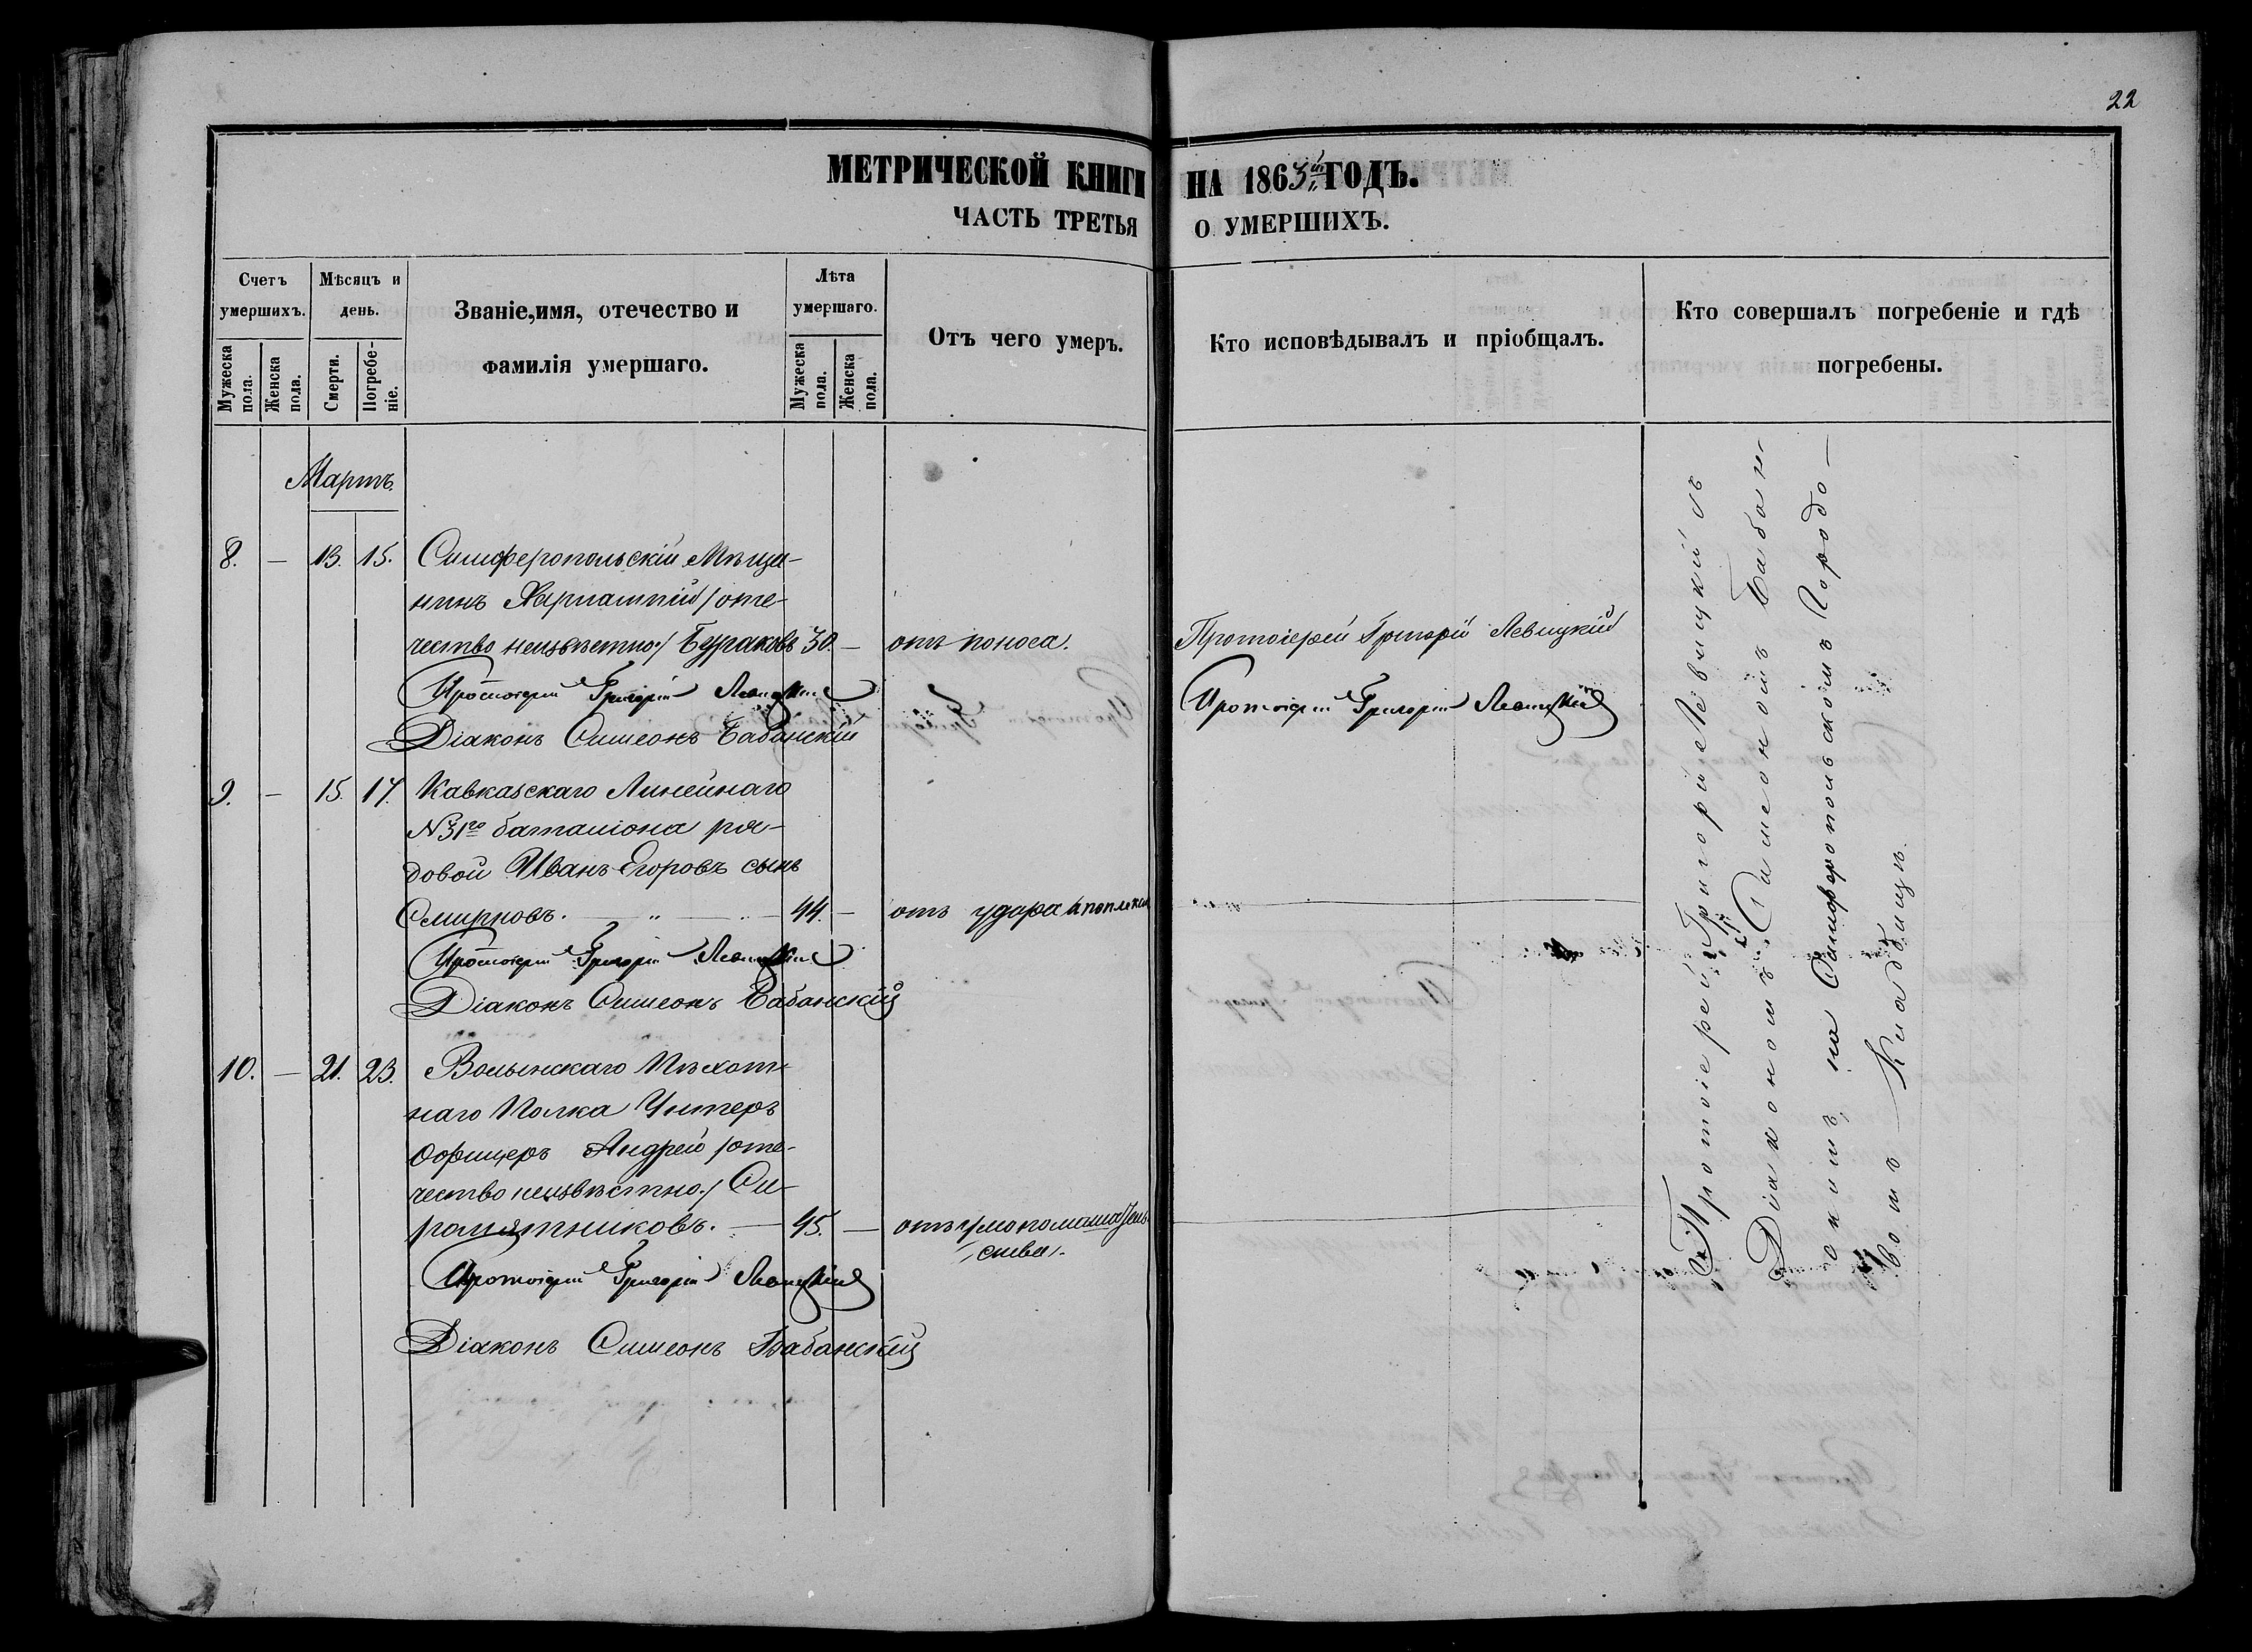 22
МЕТРИЧЕСКОЙ КНИГИ НА 1863й ГОДЪ.
ЧАСТЬ ТРЕТЬЯ О УМЕРШИХЪ.
Счетъ умершихъ.
Мужеска пола.
Женска пола.
Мѣсяцъ и день.
Смерти.
Погребе-
ніе.
Званіе, имя, отечество и
фамилія умершаго.
Лѣта умершаго.
Мужеска пола.
Женска пола.
Отъ чего умеръ.
Кто исповѣдывалъ и пріобщалъ.
Кто совершалъ погребеніе и гдѣ
погребены.
Мартъ.
8. — 13. 15. Симферопольскій Мѣща-
нинъ Харлампій /оте-
чество неизвѣстно/ Бураковъ 30. — отъ поноса. Протоіерей Григорій Левицкій
Протоіерей Григорій Левицкій Протоіерей Григорій Левицкій
Діаконъ Симеонъ Бабанскій
9. — 15. 17. Кавказскаго Линейнаго
№31го баталіона ря-
довой Иванъ Егоровъ сынъ
Смирновъ. — „ — 44. — отъ удара
Протоіерей Григорій Левицкій
Діаконъ Симеонъ Бабанскій
10. — 21. 23. Волынскаго Пѣхот-
наго Полка Унтеръ
Офицеръ Андрей /оте-
чество неизвѣстно./ Си-
ромятниковъ. — 45. — отъ умопомѣшатель-
ства.
Протоіерей Григорій Левицкій
Діаконъ Симеонъ Бабанскій
Протоіерей Григорій Левицкій съ
Діакономъ Симеономъ Бабан-
скимъ, на Симферопольскомъ Городо-
вомъ Кладбищѣ.